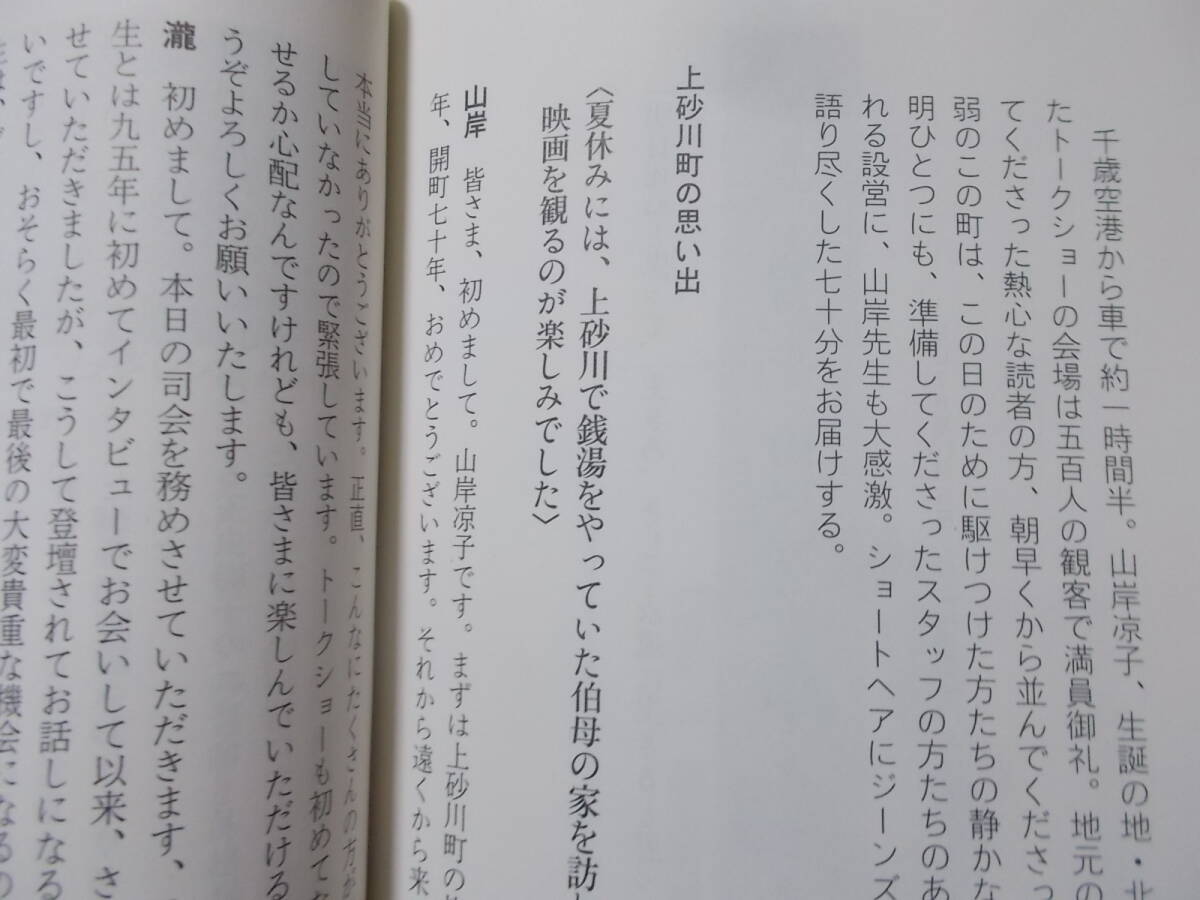 千歳空港から車で約一時間半。山岸凉子、生誕の地・北
たトークショーの会場は五百人の観客で満員御礼。地元の
てくださった熱心な読者の方、朝早くから並んでくださっ
弱のこの町は、この日のために駆けつけた方たちの静かな
明ひとつにも、準備してくださったスタッフの方たちのあ
れる設営に、山岸先生も大感激。ショートヘアにジーンズ
語り尽くした七十分をお届けする。
上砂川町の思い出
〈夏休みには、上砂川で銭湯をやっていた伯母の家を訪
映画を観るのが楽しみでした〉
山岸 皆さま、初めまして。山岸凉子です。まずは上砂川町の
年、開町七十年、おめでとうございます。それから遠くから来
本当にありがとうございます。正直、こんなにたくさんの方が
していなかったので緊張しています。トークショーも初めて
せるか心配なんですけれども、皆さまに楽しんでいただける
うぞよろしくお願いいたします。
瀧 初めまして。本日の司会を務めさせていただきます、
生とは九五年に初めてインタビューでお会いして以来、さ
せていただきましたが、こうして登壇されてお話しになる
いですし、おそらく最初で最後の大変貴重な機会になるの